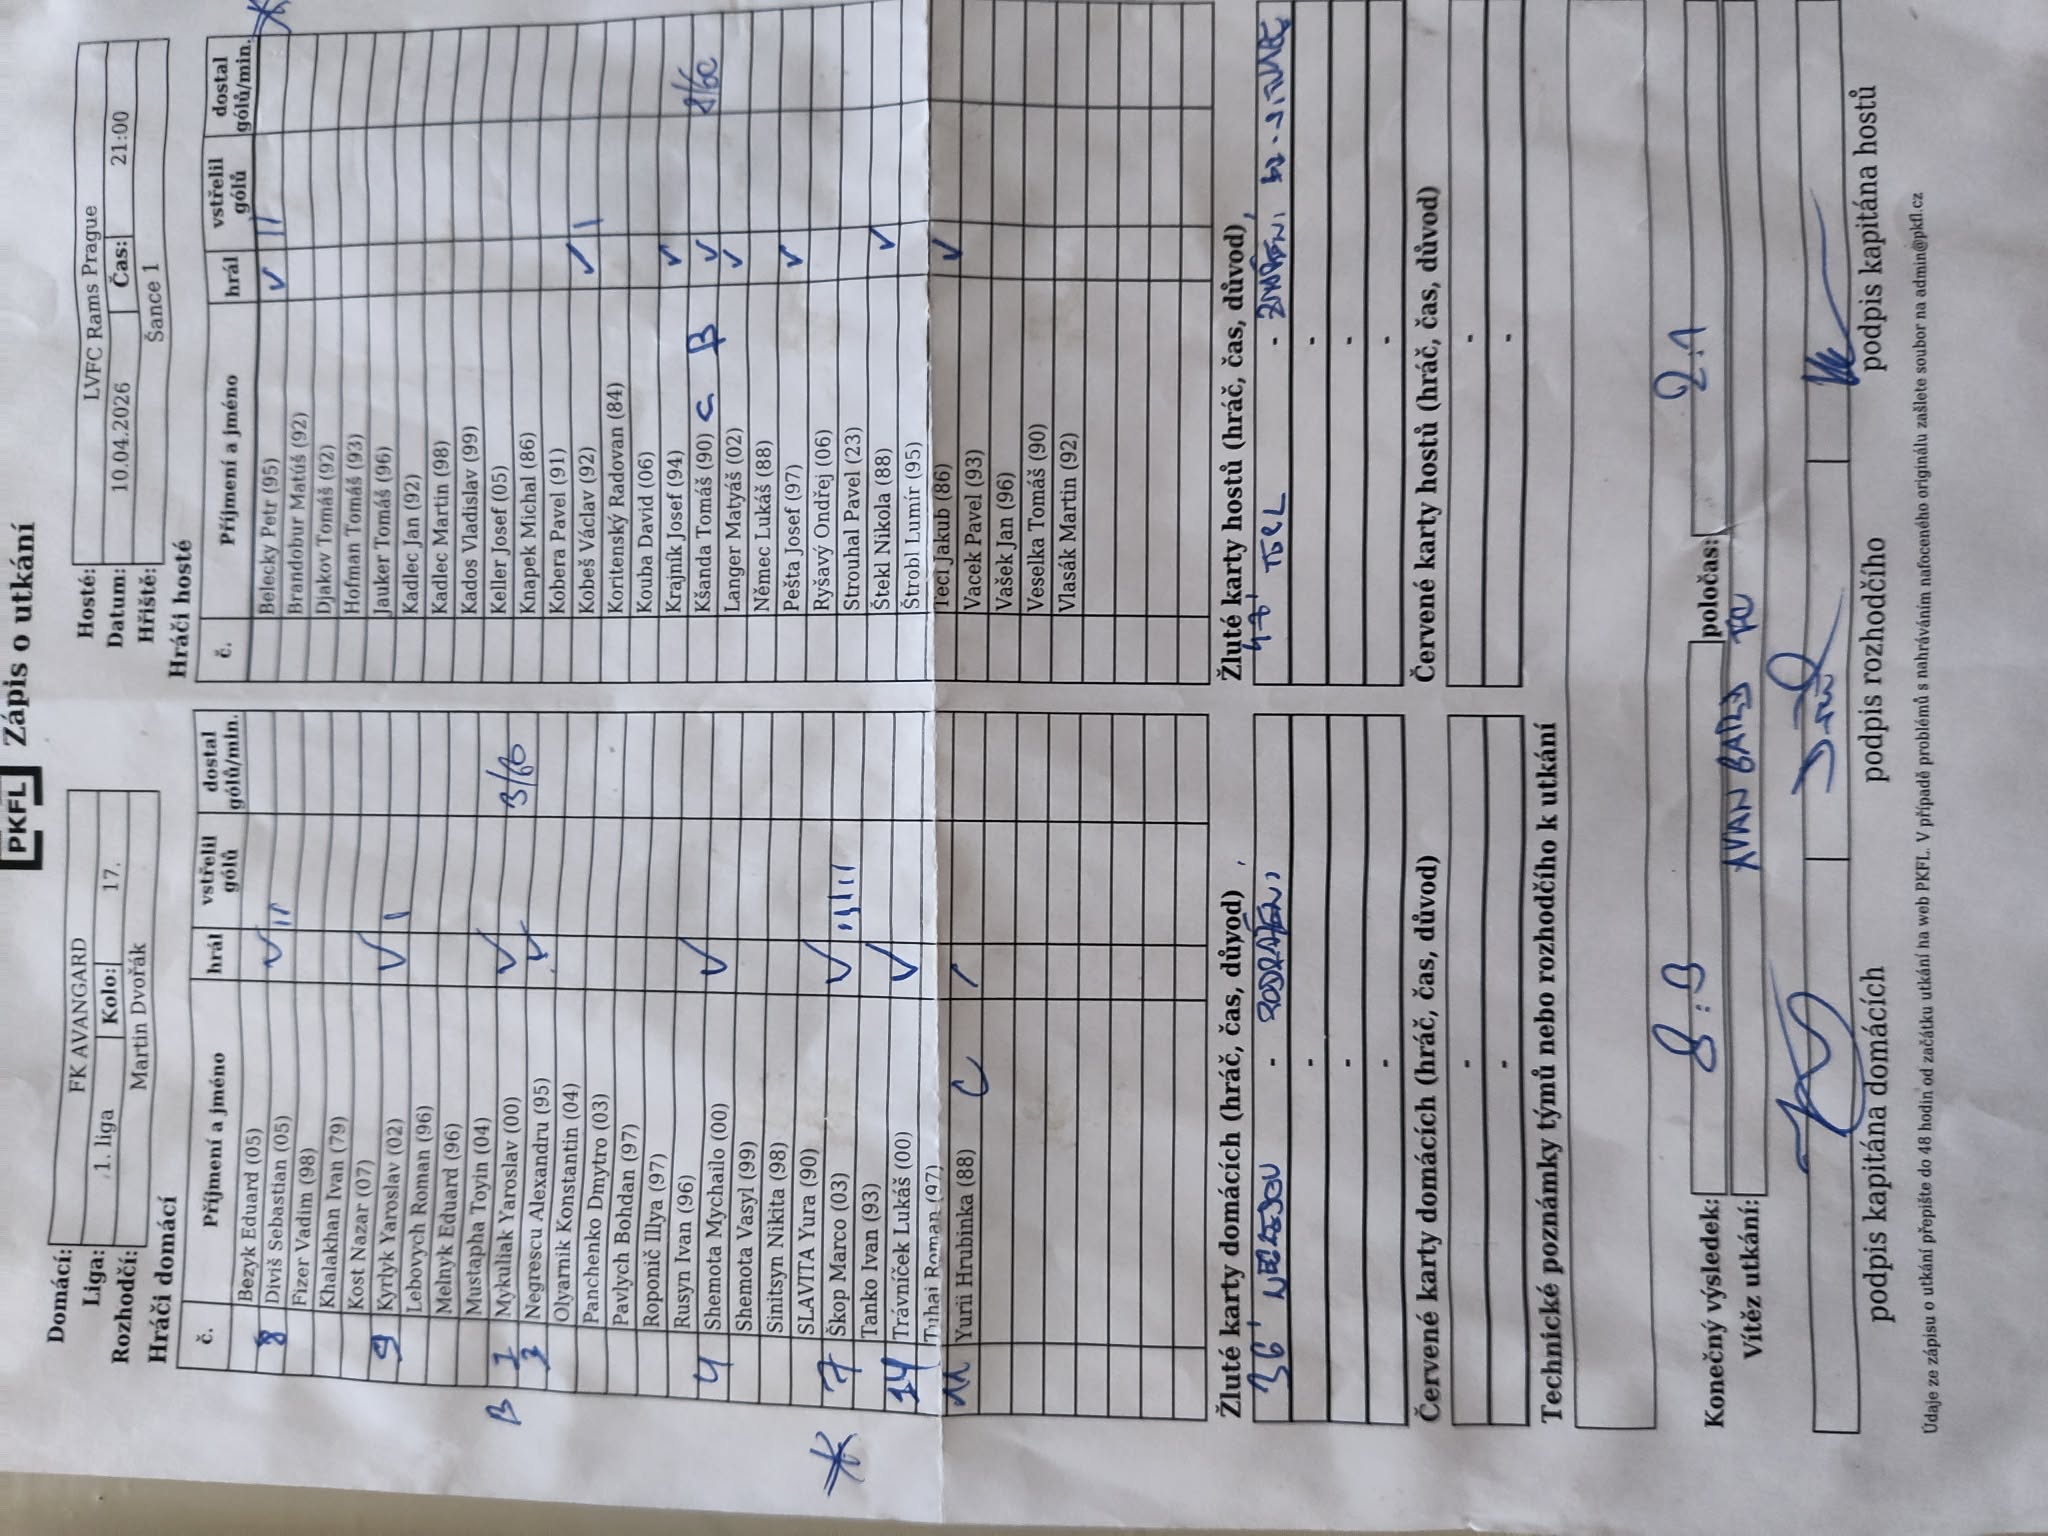 PKFL Zápis o utkání
Domácí: FK AVANGARD
Liga: 1. liga Kolo: 17.
Rozhodčí: Martin Dvořák
Hráči domácí
č. Příjmení a jméno hrál vstřelil gólů dostal gólů/min.
Bezyk Eduard (05)
8 Diviš Sebastian (05) ✓ II
Fizer Vadim (98)
Khalakhan Ivan (79)
Kost Nazar (07)
9 Kyrlyk Yaroslav (02) ✓ I
Lebovych Roman (96)
Melnyk Eduard (96)
Mustapha Toyin (04)
B 1 Mykuliak Yaroslav (00) ✓ 3/60
3 Negrescu Alexandru (95) ✓
Olyarnik Konstantin (04)
Panchenko Dmytro (03)
Pavlych Bohdan (97)
Roponič Illya (97)
Rusyn Ivan (96)
4 Shemota Mychailo (00) ✓
Shemota Vasyl (99)
Sinitsyn Nikita (98)
SLAVITA Yura (90)
7 Škop Marco (03) ✓ IIIII
Tanko Ivan (93)
14 Trávníček Lukáš (00) ✓
Tuhai Roman (97)
11 Yurii Hrubinka (88) C ✓
Žluté karty domácích (hráč, čas, důvod)
36' - PODRAŽENÍ
-
-
-
Červené karty domácích (hráč, čas, důvod)
-
-
Hosté: LVFC Rams Prague
Datum: 10.04.2026 Čas: 21:00
Hřiště: Šance 1
Hráči hosté
č. Příjmení a jméno hrál vstřelil gólů dostal gólů/min.
Belecky Petr (95) ✓ II
Brandobur Matúš (92)
Djakov Tomáš (92)
Hofman Tomáš (93)
Jauker Tomáš (96)
Kadlec Jan (92)
Kadlec Martin (98)
Kados Vladislav (99)
Keller Josef (05)
Knapek Michal (86)
Kobera Pavel (91)
Kobeš Václav (92) ✓ I
Koritenský Radovan (84)
Kouba David (06)
Krajník Josef (94) ✓
Kšanda Tomáš (90) C B ✓ 8/60
Langer Matyáš (02) ✓
Němec Lukáš (88)
Pešta Josef (97) ✓
Ryšavý Ondřej (06)
Strouhal Pavel (23)
Štekl Nikola (88) ✓
Štrobl Lumír (95)
Tecl Jakub (86) ✓
Vacek Pavel (93)
Vašek Jan (96)
Veselka Tomáš (90)
Vlasák Martin (92)
Žluté karty hostů (hráč, čas, důvod)
-
-
-
-
Červené karty hostů (hráč, čas, důvod)
-
-
Technické poznámky týmů nebo rozhodčího k utkání
Konečný výsledek: 8:3 poločas: 2:1
Vítěz utkání:
podpis kapitána domácích podpis rozhodčího podpis kapitána hostů
Údaje ze zápisu o utkání přepište do 48 hodin od začátku utkání na web PKFL. V případě problémů s nahráváním nafoceného originálu zašlete soubor na admin@pkfl.cz